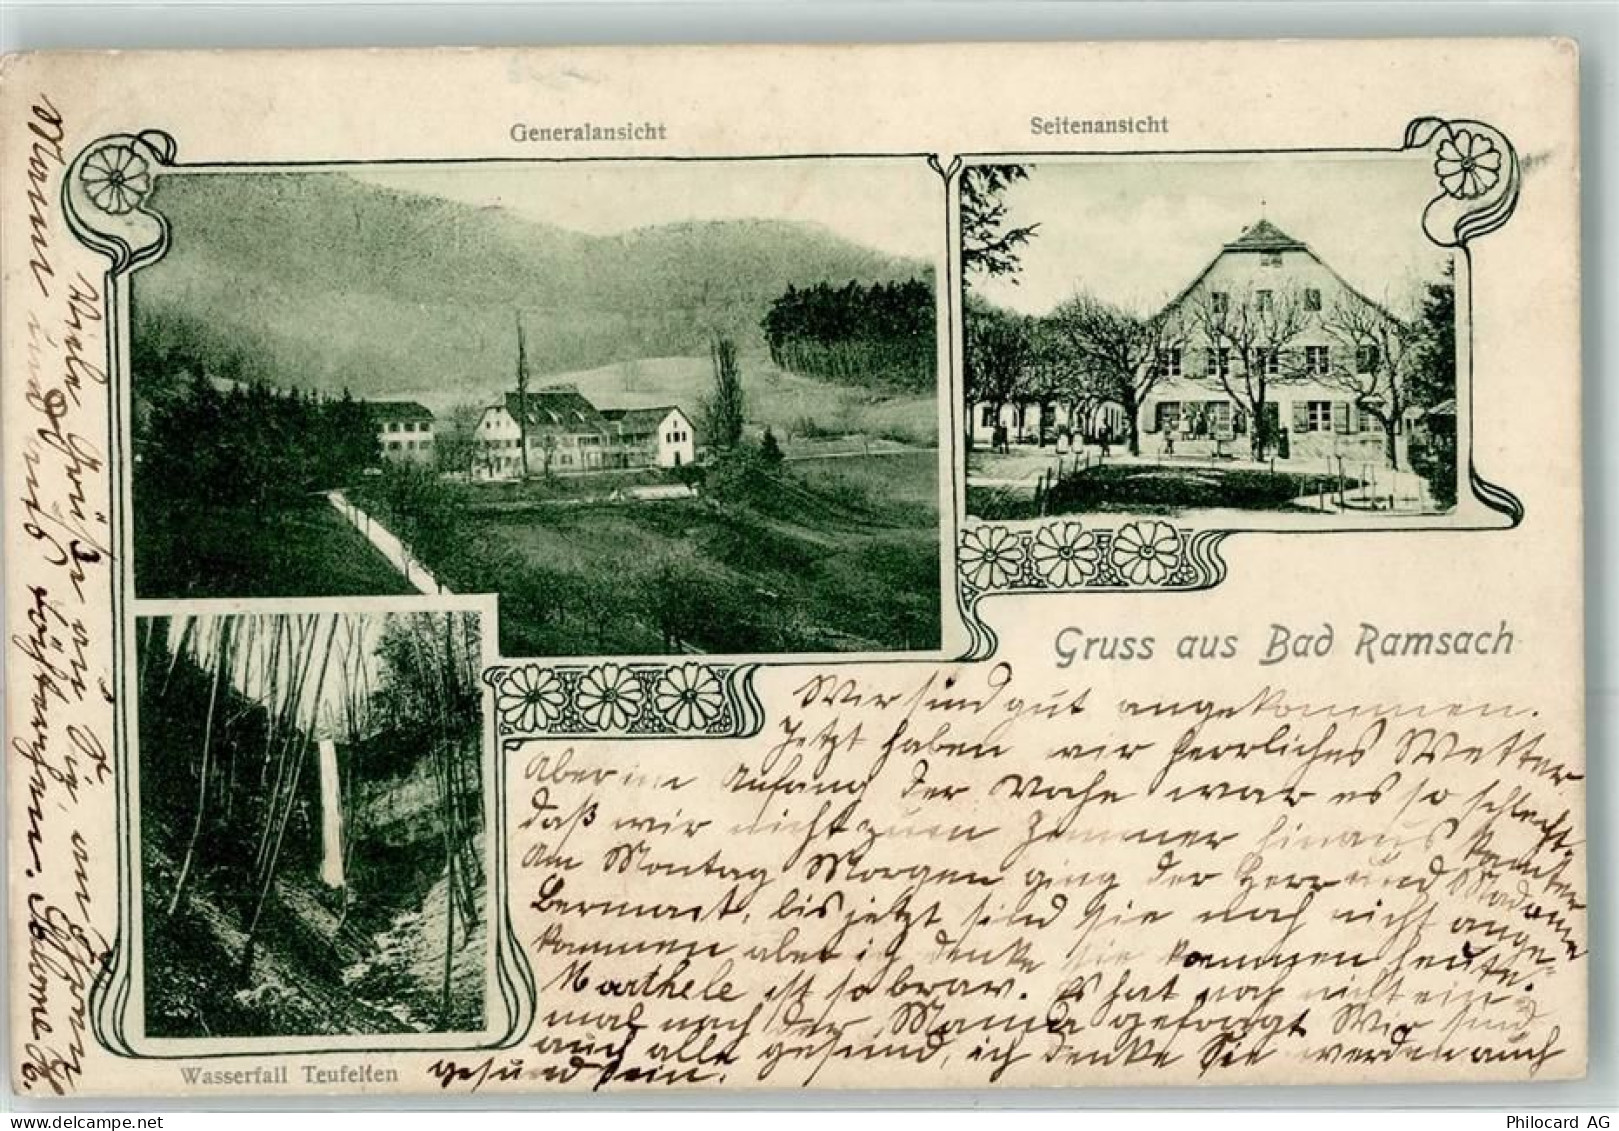 Generalansicht
Seitenansicht
Gruss aus Bad Ramsach
Wasserfall Teufelten
Wir sind gut angekommen.
Jetzt haben wir herrliches Wetter
Aber im Anfang der Woche war es so schlecht,
daß wir nicht zum Zimmer hinaus konnten
Am Montag Morgen ging der Herr und Madame
bis jetzt sind sie noch nicht ange-
kommen aber ich denke sie kommen heute.
Marthele ist so brav. Es hat noch nicht ein-
mal nach der Mama gefragt Wir sind
auch alle gesund, ich denke Sie werden auch
gesund sein.
Viele Grüße an Sie, und Georg
Mami und
Philocard AG